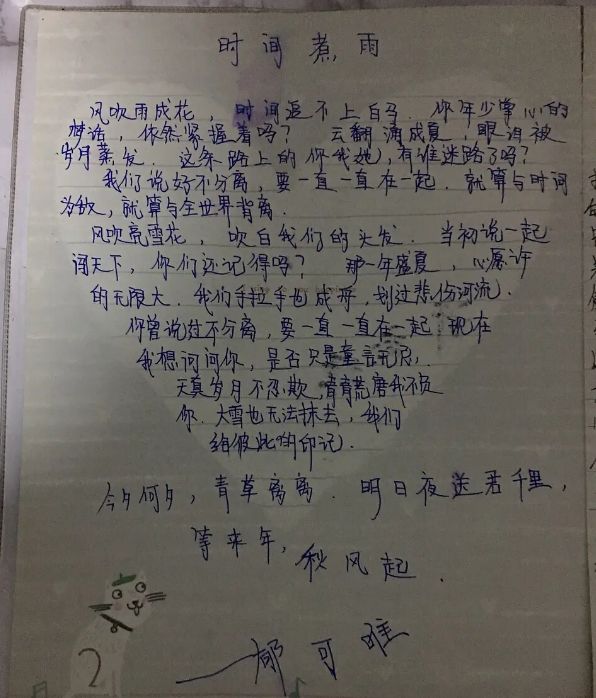 时间煮雨
风吹雨成花，时间追不上白马．你年少掌心的
梦话，依然紧握着吗？云翻涌成夏，眼泪被
岁月蒸发．这条路上的你我她，有谁迷路了吗？
我们说好不分离，要一直一直在一起．就算与时间
为敌，就算与全世界背离．
风吹亮雪花，吹白我们的头发．当初说一起
闯天下，你们还记得吗？那一年盛夏，心愿许
的无限大．我们手拉手也成舟，划过悲伤河流．
你曾说过不分离，要一直一直在一起．现在
我想问问你，是否只是童言无忌．
天真岁月不忍欺，青春荒唐我不负
你．大雪也无法抹去，我们
给彼此的印记．
今夕何夕，青草离离．明日夜送君千里，
等来年，
秋风起．
——郁可唯
2